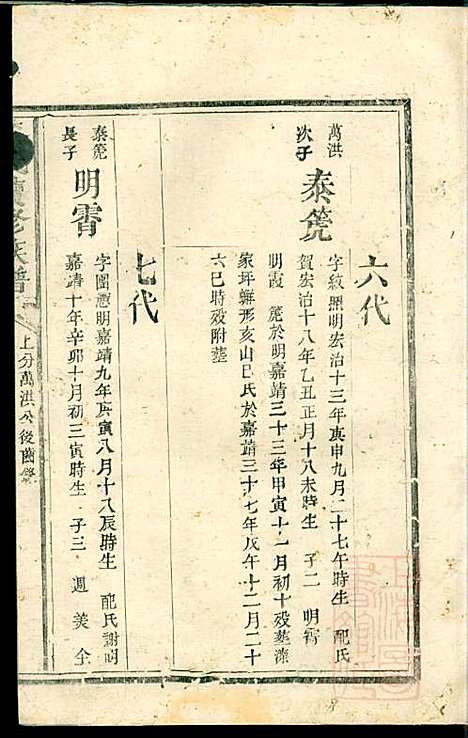 六代
萬洪
次子
泰箎
字紋照明宏治十三年庚申九月二十七午時生 配氏
賀宏治十八年乙丑正月十八未時生 子二 明霄
明霞 箎於明嘉靖三十三年甲寅十一月初十殁塟漆
家坪辦形亥山巳氏於嘉靖三十七年戊午十二月二十
六巳時殁附塟
七代
泰箎
長子
明霄
字圖 明嘉靖九年庚寅八月十八辰時生 配氏謝明
嘉靖十年辛卯十月初三寅時生 子三 週 美 全
續修族譜
上分萬洪公後